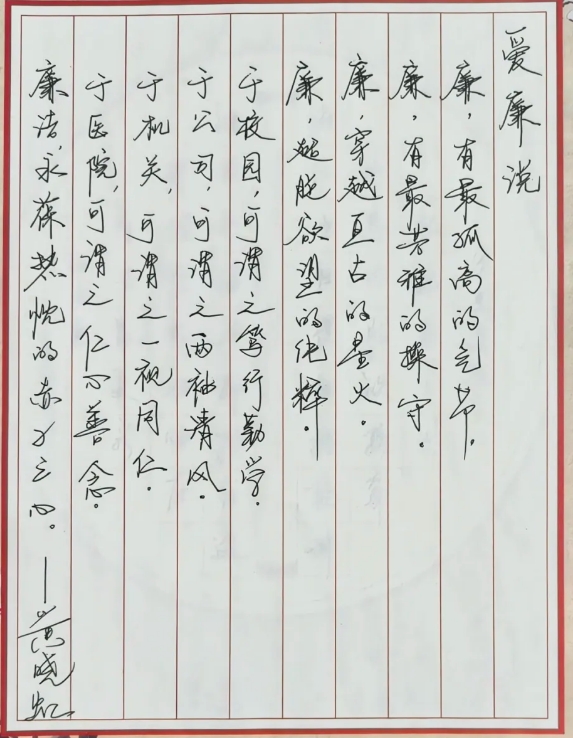 爱廉说
廉，有最孤高的气节。
廉，有最芳雅的操守。
廉，穿越亘古的星火。
廉，超脱欲望的纯粹。
于校园，可谓之笃行勤学。
于公司，可谓之两袖清风。
于机关，可谓之一视同仁。
于医院，可谓之仁心善念。
廉洁，永葆热忱的赤子之心。——黄晓虹